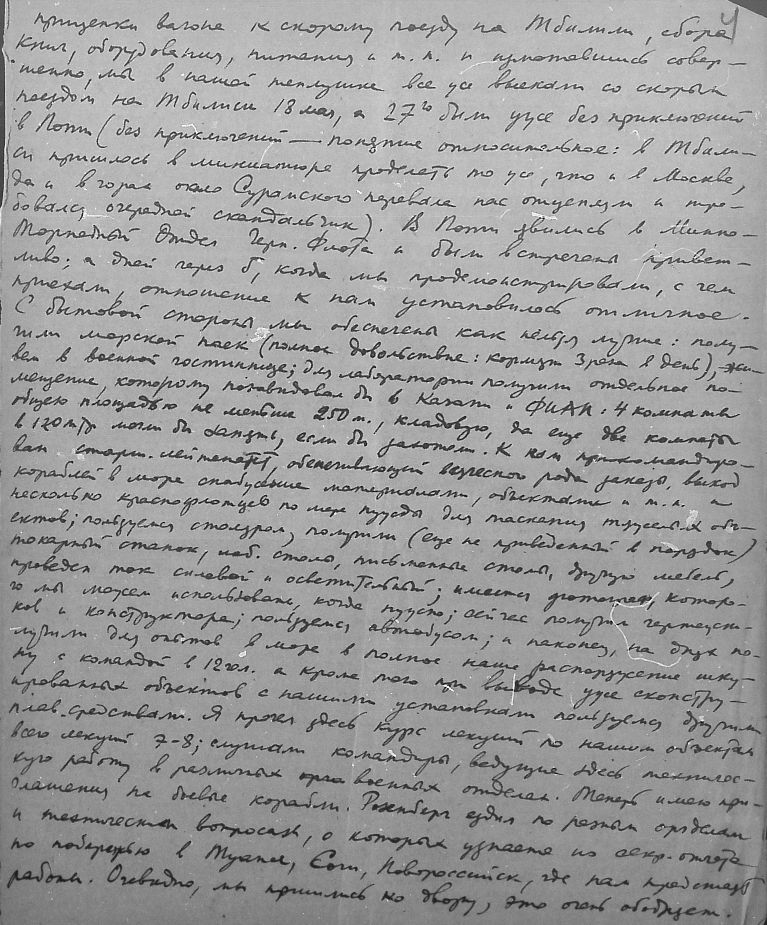 4
прицепки вагона к скорому поезду на Тбилиси, сбора
книг, оборудования, питания и т.п. и измотавшись совер-
шенно, мы в нашей теплушке все же выехали со скорым
поездом на Тбилиси 18 мая, а 27го были уже без приключений
в Поти (без приключений — понятие относительное: в Тбили-
си пришлось в миниатюре проделать то же, что и в Москве,
да и в горах около Сурамского перевала нас отцепили и тре-
бовался очередной скандальчик). В Поти явились в Минно-
Торпедный Отдел Черн. Флота и были встречены привет-
ливо; а дней через 5, когда мы продемонстрировали, с чем
приехали, отношение к нам установилось отличное.
С бытовой стороны мы обеспечены как нельзя лучше: полу-
чили морской паек (полное довольствие: кормят 3 раза в день), жи-
вем в военной гостинице; для лаборатории получили отдельное по-
мещение, которому позавидовал бы в Казани и ФИАН: 4 комнаты
общею площадью не меньше 250 м., кладовую, да еще две комнаты
в 120 м. могли бы занять, если бы захотели. К нам прикомандиро-
ван старш. лейтенант, обеспечивающий всяческого рода заказы, выход
кораблей в море, снабжение материалами, объектами и т.п. и
несколько краснофлотцев по мере нужды для таскания тяжелых объ-
ектов; пользуемся столяром, получили (еще не приведенный в порядок)
токарный станок, лаб. столы, письменные столы, другую мебель,
проведен ток силовой и осветительный; имеется фотограф, которо-
го мы можем использовать, когда нужно; сейчас получили чертежни-
ков и конструктора; пользуемся автобусом; и наконец, на днях по-
лучили для опытов в море в полное наше распоряжение шху-
ну с командой в 12 чел. а кроме того при выводе уже сконстру-
ированных объектов с нашими установками пользуемся другими
плав. средствами. Я прочел здесь курс лекций по нашим объектам
всего лекций 7-8; слушали командиры, ведущие здесь техничес-
кую работу в различных орга военных отделах. Теперь имею при-
глашения на боевые корабли. Розенберг ездил по разным отделам
и техническим вопросам, о которых узнаете из секр. отчета
по побережью в Туапсе, Сочи, Новороссийск, где нам предстоят
работы. Очевидно, мы пришлись ко двору, это очень ободряет.